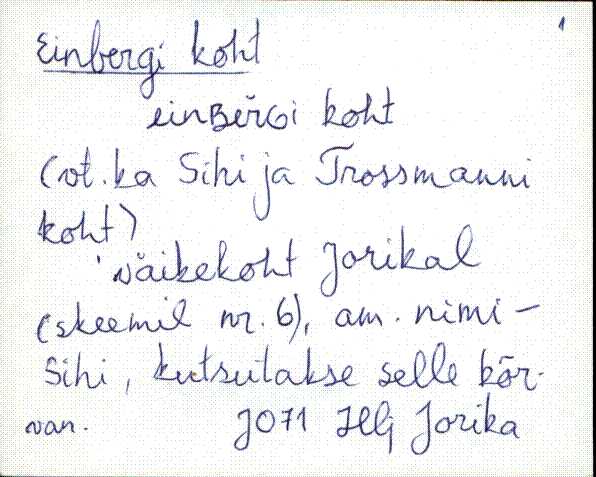 1
Einbergi koht
einBĕrGi koht
(vt. ka Sihi ja Trossmanni
koht)
'väikekoht Jorikal
(skeemil nr. 6), am. nimi –
Sihi, kutsutakse selle kõr-
van. JO71 Hlj Jorika